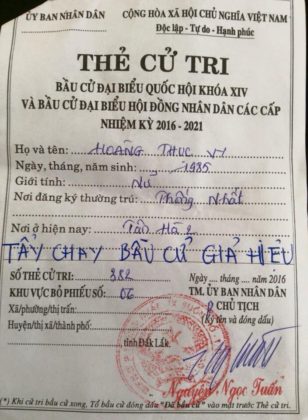 ỦY BAN NHÂN DÂN
CỘNG HÒA XÃ HỘI CHỦ NGHĨA VIỆT NAM
Độc lập - Tự do - Hạnh phúc
THẺ CỬ TRI
BẦU CỬ ĐẠI BIỂU QUỐC HỘI KHÓA XIV
VÀ BẦU CỬ ĐẠI BIỂU HỘI ĐỒNG NHÂN DÂN CÁC CẤP
NHIỆM KỲ 2016 - 2021
Họ và tên: HOÀNG THỤC VY
Ngày, tháng, năm sinh: 1985
Giới tính: Nữ
Nơi đăng ký thường trú: Thống Nhất
Nơi ở hiện nay: Tân Hà 2
TẨY CHAY BẦU CỬ GIẢ HIỆU
SỐ THẺ CỬ TRI: 382
KHU VỰC BỎ PHIẾU SỐ: 06
Xã/phường/thị trấn:
Huyện/thị xã/thành phố:
tỉnh Đắk Lắk
Ngày .... tháng .... năm 2016
TM. ỦY BAN NHÂN DÂN
CHỦ TỊCH
(Ký tên và đóng dấu)
Nguyễn Ngọc Tuấn
(*) Khi cử tri bầu cử xong, Tổ bầu cử đóng dấu "Đã bầu cử" vào mặt trước Thẻ cử tri.